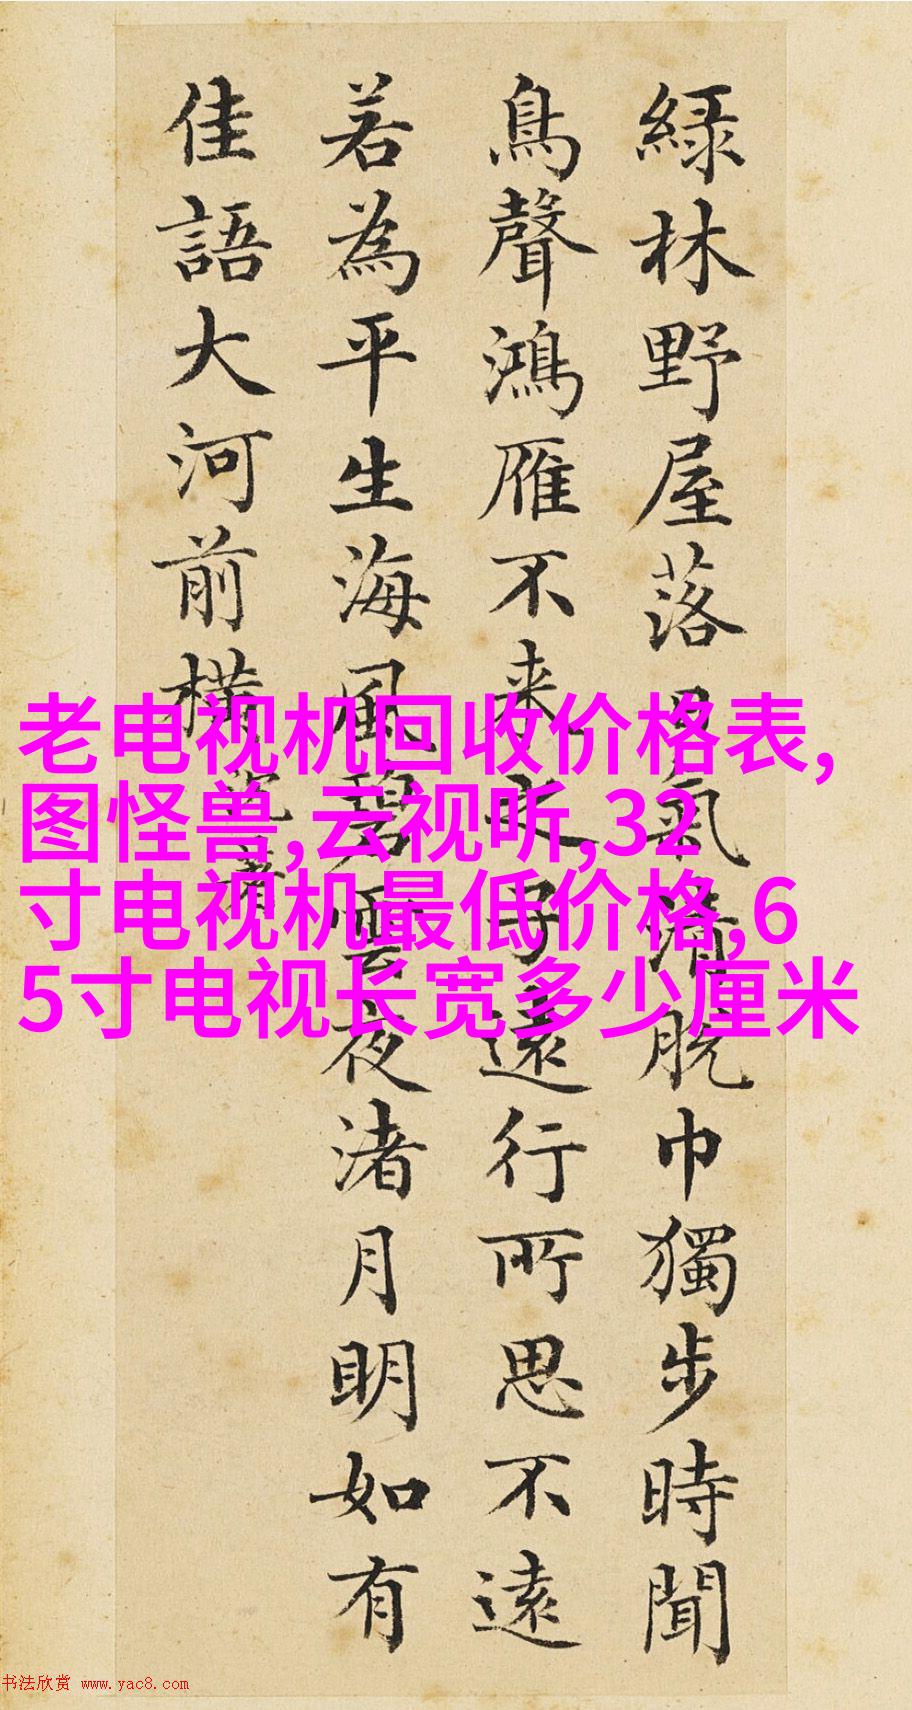 緑林野屋落日氣清脫巾獨步時聞
鳥聲鴻雁不来之子遠行所思不遠
若為平生海風碧雲夜渚月明如有
佳語大河前橫
老电视机回收价格表,
图怪兽,云视听,32
寸电视机最低价格,6
5寸电视长宽多少厘米
书法欣赏 www.yac8.com